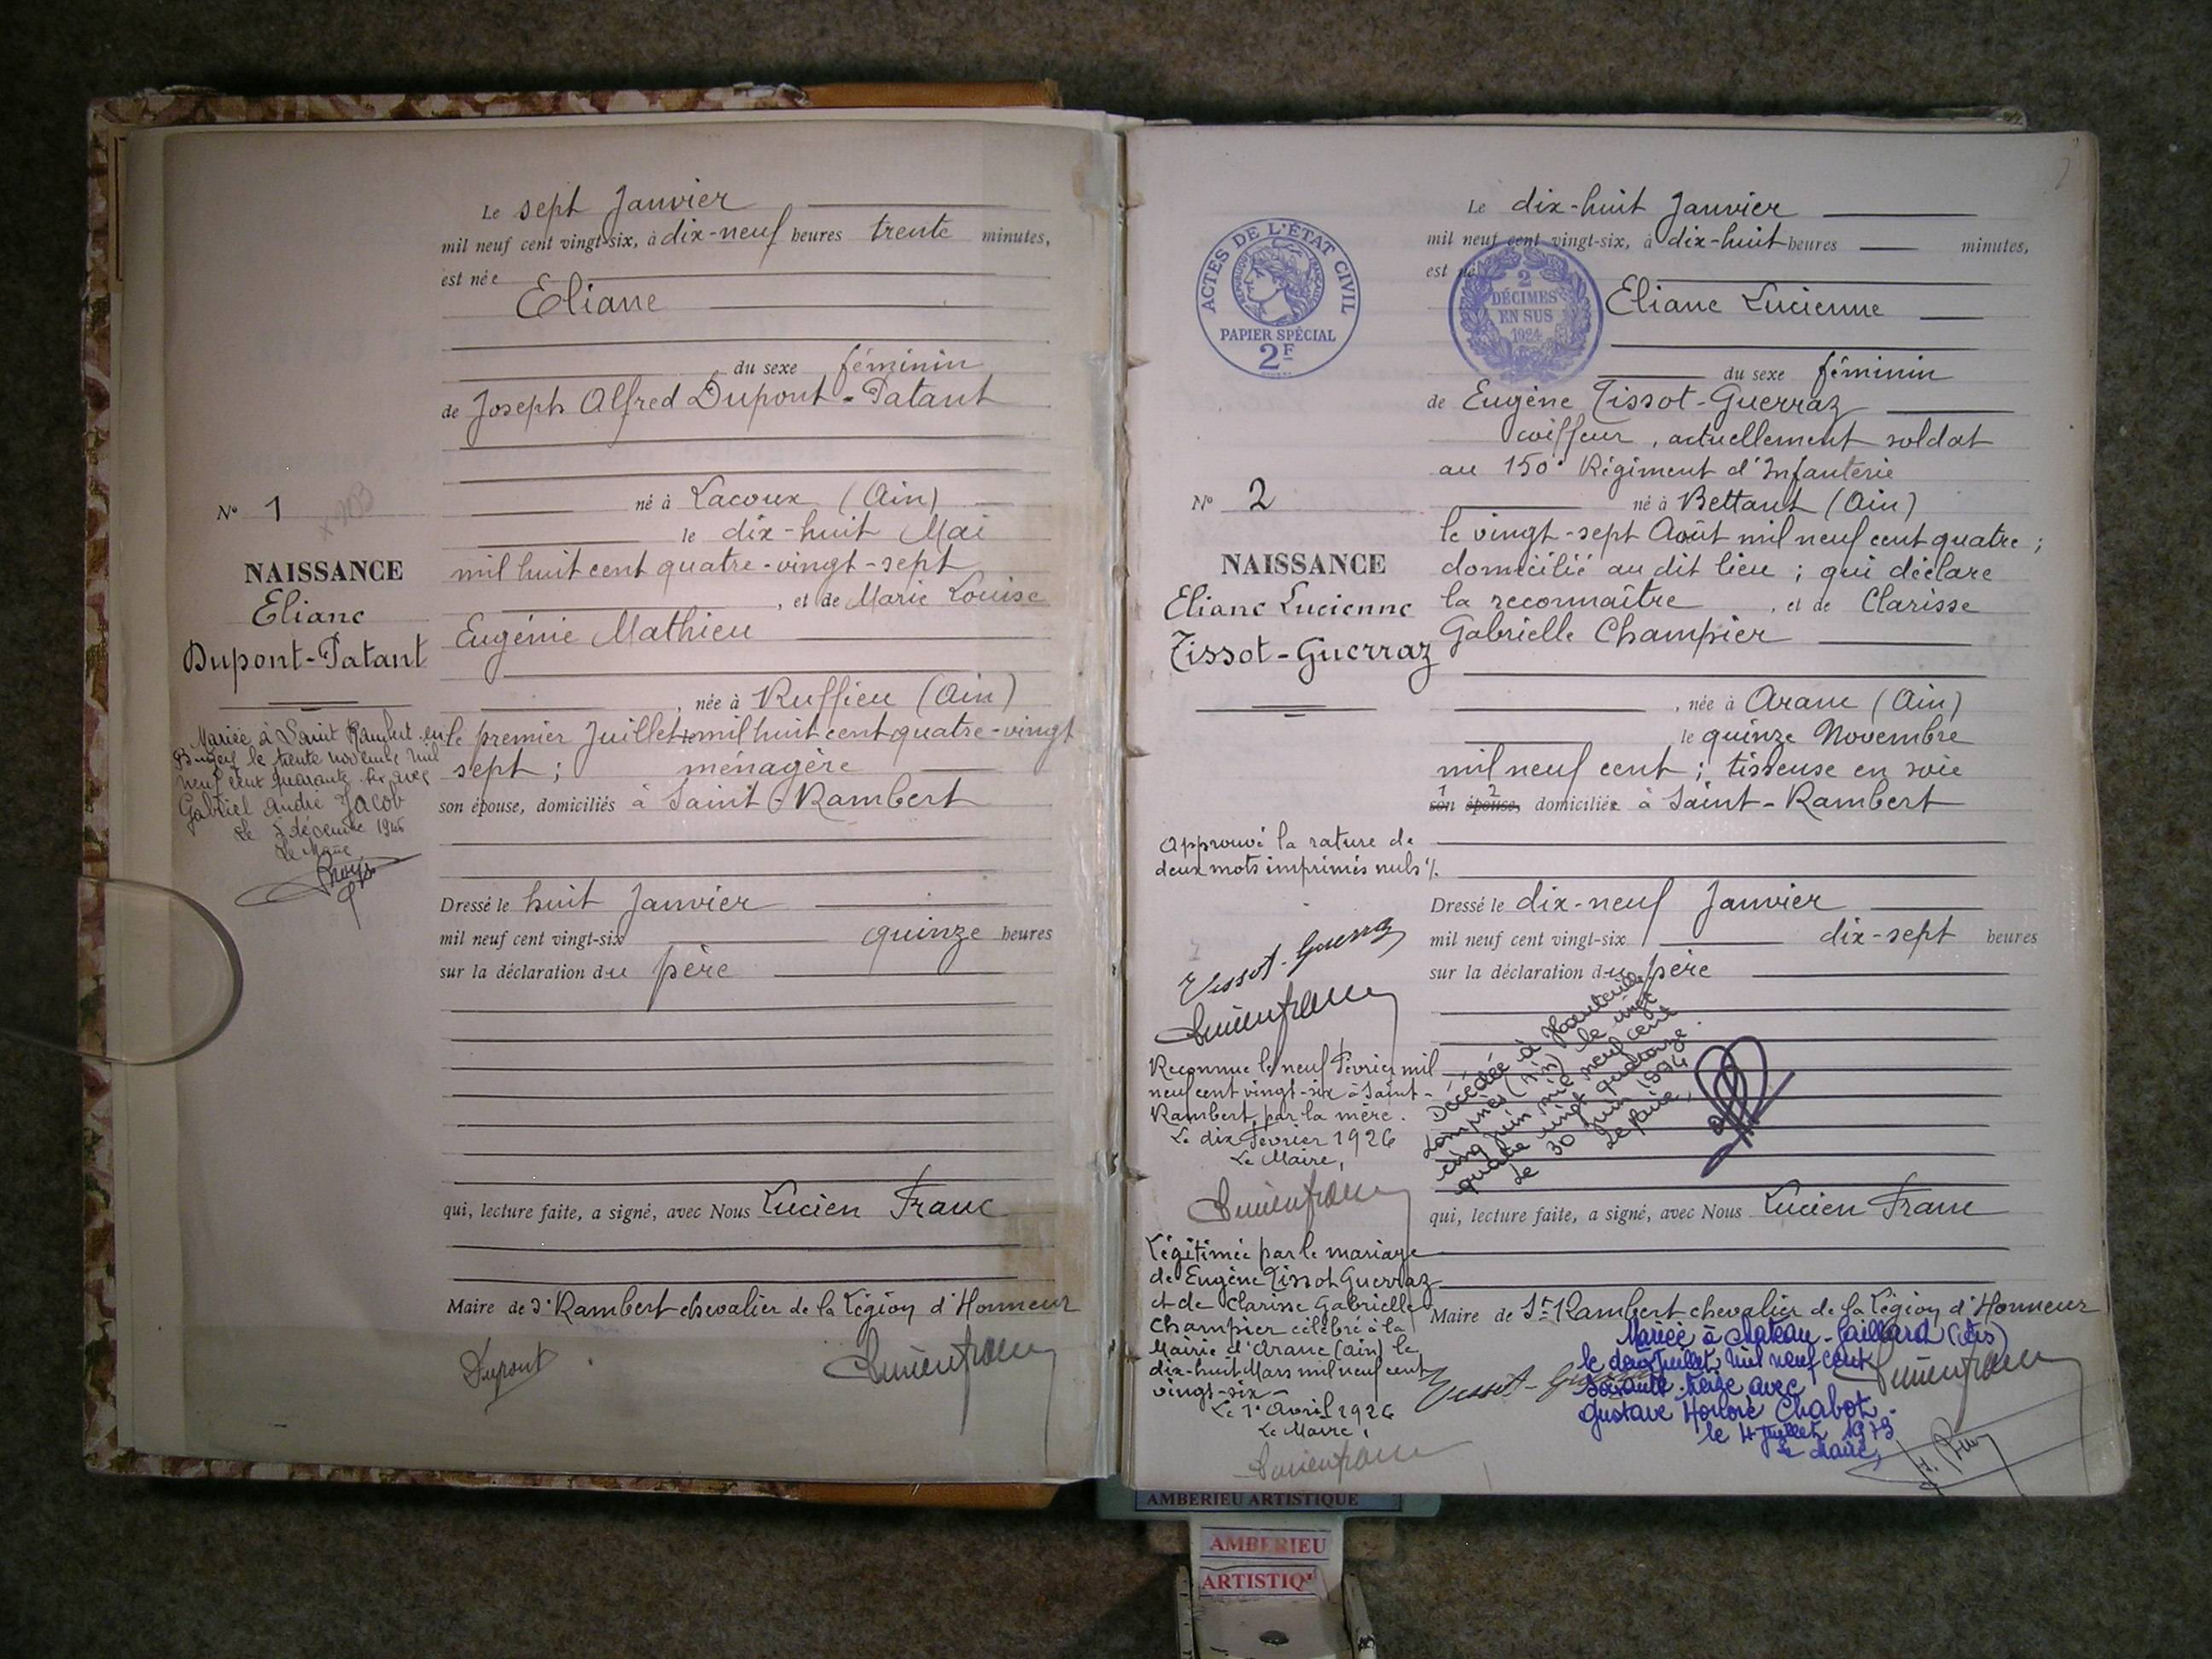 Le sept Janvier
mil neuf cent vingt-six, à dix-neuf heures trente minutes,
est née
Eliane
du sexe féminin
de Joseph Alfred Dupont-Patant
né à Lacoux (Ain)
le dix-huit Mai
mil huit cent quatre-vingt-sept
, et de Marie Louise
Eugénie Mathieu
, née à Ruffieu (Ain)
le premier Juillet mil huit cent quatre-vingt
sept ; ménagère
son épouse, domiciliés à Saint-Rambert
Dressé le huit Janvier
mil neuf cent vingt-six quinze heures
sur la déclaration du père
qui, lecture faite, a signé, avec Nous Lucien Franc
Maire de St Rambert chevalier de la Légion d'Honneur
Dupont
Lucien Franc
N° 1
NAISSANCE
Eliane
Dupont-Patant
Mariée à Saint Rambert en
Bugey le trente novembre mil
neuf cent quarante six avec
Gabriel André Jacob
Le 2 décembre 1946
Le Maire
ACTES DE L'ÉTAT CIVIL
RÉPUBLIQUE FRANÇAISE
PAPIER SPÉCIAL
2F
2
DÉCIMES
EN SUS
1924
Le dix-huit Janvier
mil neuf cent vingt-six, à dix-huit heures minutes,
est né
Eliane Lucienne
du sexe féminin
de Eugène Tissot-Guerraz
coiffeur, actuellement soldat
au 150e Régiment d'Infanterie
né à Bettant (Ain)
le vingt-sept Août mil neuf cent quatre ;
domicilié au dit lieu ; qui déclare
la reconnaître , et de Clarisse
Gabrielle Champier
, née à Aranc (Ain)
le quinze Novembre
mil neuf cent ; tisseuse en soie
1 2
son épouse, domiciliée à Saint-Rambert
Dressé le dix-neuf Janvier
mil neuf cent vingt-six dix-sept heures
sur la déclaration du père
Décédée à Hauteville
Lompnes (Ain) le vingt
cinq juin mil neuf cent
quatre vingt quatorze.
Le 30 juin 1994
Le Maire,
qui, lecture faite, a signé, avec Nous Lucien Franc
Maire de St Rambert chevalier de la Légion d'Honneur
Mariée à Château-Gaillard (Ain)
le deux Juillet mil neuf cent
soixante-treize avec
Gustave Honoré Chabot.
le 4 Juillet 1973
Le Maire,
Tissot-Guerraz
Lucien Franc
N° 2
NAISSANCE
Eliane Lucienne
Tissot-Guerraz
Approuvé la rature de
deux mots imprimés nuls %.
Tissot-Guerraz
Lucien Franc
Reconnue le neuf Février mil
neuf cent vingt-six à Saint-
Rambert, par la mère.
Le dix Février 1926
Le Maire,
Lucien Franc
Légitimée par le mariage
de Eugène Tissot Guerraz
et de Clarisse Gabrielle
Champier célébré à la
Mairie d'Aranc (Ain) le
dix-huit Mars mil neuf cent
vingt-six
Le 1er Avril 1926
Le Maire,
Lucien Franc
AMBERIEU ARTISTIQUE
AMBERIEU
ARTISTIQ